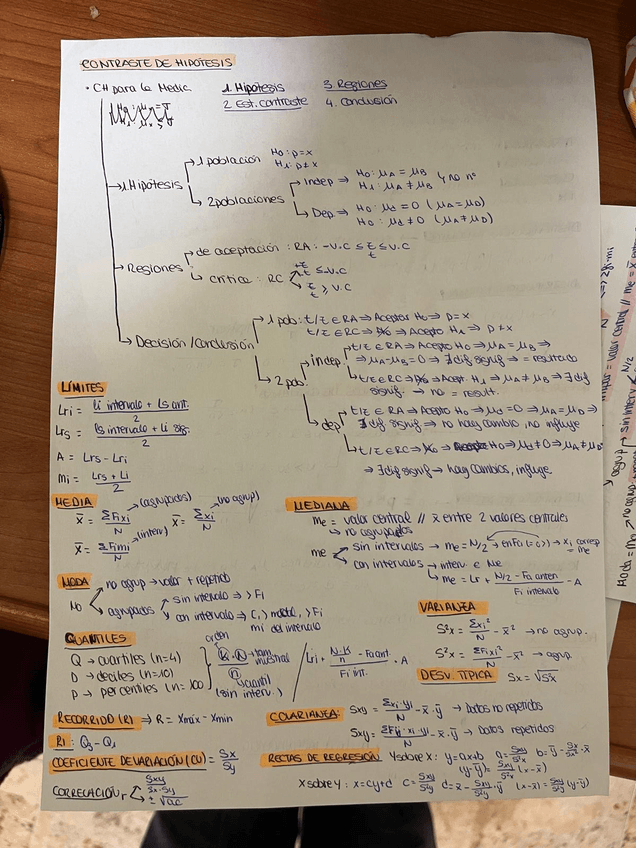 CONTRASTE DE HIPÓTESIS
• CH para la Media
1. Hipótesis
3. Regiones
2. Est. contraste
4. Conclusión
→ 1. Hipótesis
→ 1 población
H0: p=x
H1: p≠x
→ 2 poblaciones
Indep ⇒ H0: μA = μB
H1: μA ≠ μB
Dep ⇒ H0: μd = 0 (μA = μD)
H0: μd ≠ 0 (μA ≠ μD)
→ Regiones
de aceptación: RA: -V.C ≤ Z/t ≤ V.C
crítica: RC
≤ -V.C
Z/t ≥ V.C
→ Decisión/Conclusión
→ 1 pob: t/Z ∈ RA ⇒ Aceptar H0 ⇒ p=x
t/Z ∈ RC ⇒ H0 ⇒ Acepto HA ⇒ p≠x
→ 2 pob
indep
t/Z ∈ RA ⇒ Acepto H0 ⇒ μA = μB ⇒
⇒ μA-μB = 0 ⇒ ∄ dif signif ⇒ = resultado
t/Z ∈ RC ⇒ H0 ⇒ Acept. H1 ⇒ μA ≠ μB ⇒ ∃ dif
signif. → no = result.
dep
t/Z ∈ RA ⇒ Acepto H0 ⇒ μd = 0 ⇒ μA = μD ⇒
∄ dif signif → no hay cambio, no influye
t/Z ∈ RC ⇒ H0 → H0 ⇒ μd ≠ 0 ⇒ μA ≠ μD
⇒ ∃ dif signif → hay cambios, influye.
LÍMITES
Lri = (Li intervalo + Ls ant.)/2
Lrs = (Ls intervalo + Li sig.)/2
A = Lrs - Lri
mi = (Lrs + Li)/2
MEDIA
x̄ = ΣFixi/N (agrupados) x̄ = Σxi/N (no agrup)
x̄ = ΣFimi/N (interv)
MEDIANA
Me = valor central // x̄ entre 2 valores centrales
→ no agrupados
me
sin intervalos → me = N/2 → en Fa (= ó >) → xi corresp = me
con intervalos → interv. ∈ Me
→ me = Lr + (N/2 - Fa anten)/Fi intervalo - A
MODA
no agrup → valor + repetido
Mo
agrupados
sin intervalo ⇒ > Fi
con intervalo ⇒ modal, > Fi
mi del intervalo
QUANTILES
Q → cuartiles (n=4)
D → deciles (n=10)
P → percentiles (n=100)
orden
K · N → tam muestral
n
cuantil
(sin interv.)
Lri + (N·K/n - Fa ant)/Fi int. · A
VARIANZA
S²x = Σxi²/N - x̄² → no agrup.
S²x = ΣFixi²/N - x̄² → agrup
DESV. TÍPICA Sx = √S²x
RECORRIDO (R) ⇒ R = Xmáx - Xmin
RI: Q3 - Q1
COEFICIENTE DE VARIACIÓN (CV) = Sx/Sy
CORRELACIÓN, r
Sxy/(Sx·Sy)
± √ac
COVARIANZA:
Sxy = Σxi·yi/N - x̄·ȳ → Datos no repetidos
Sxy = ΣFij·xi·yi/N - x̄·ȳ → Datos repetidos
RECTAS DE REGRESIÓN Y sobre X: y = ax+b a = Sxy/S²x b = ȳ - Sxy/S²x · x̄
(y-ȳ) = Sxy/S²x (x-x̄)
X sobre Y: x = cy+d c = Sxy/S²y d = x̄ - Sxy/S²y · ȳ (x-x̄) = Sxy/S²y (y-ȳ)